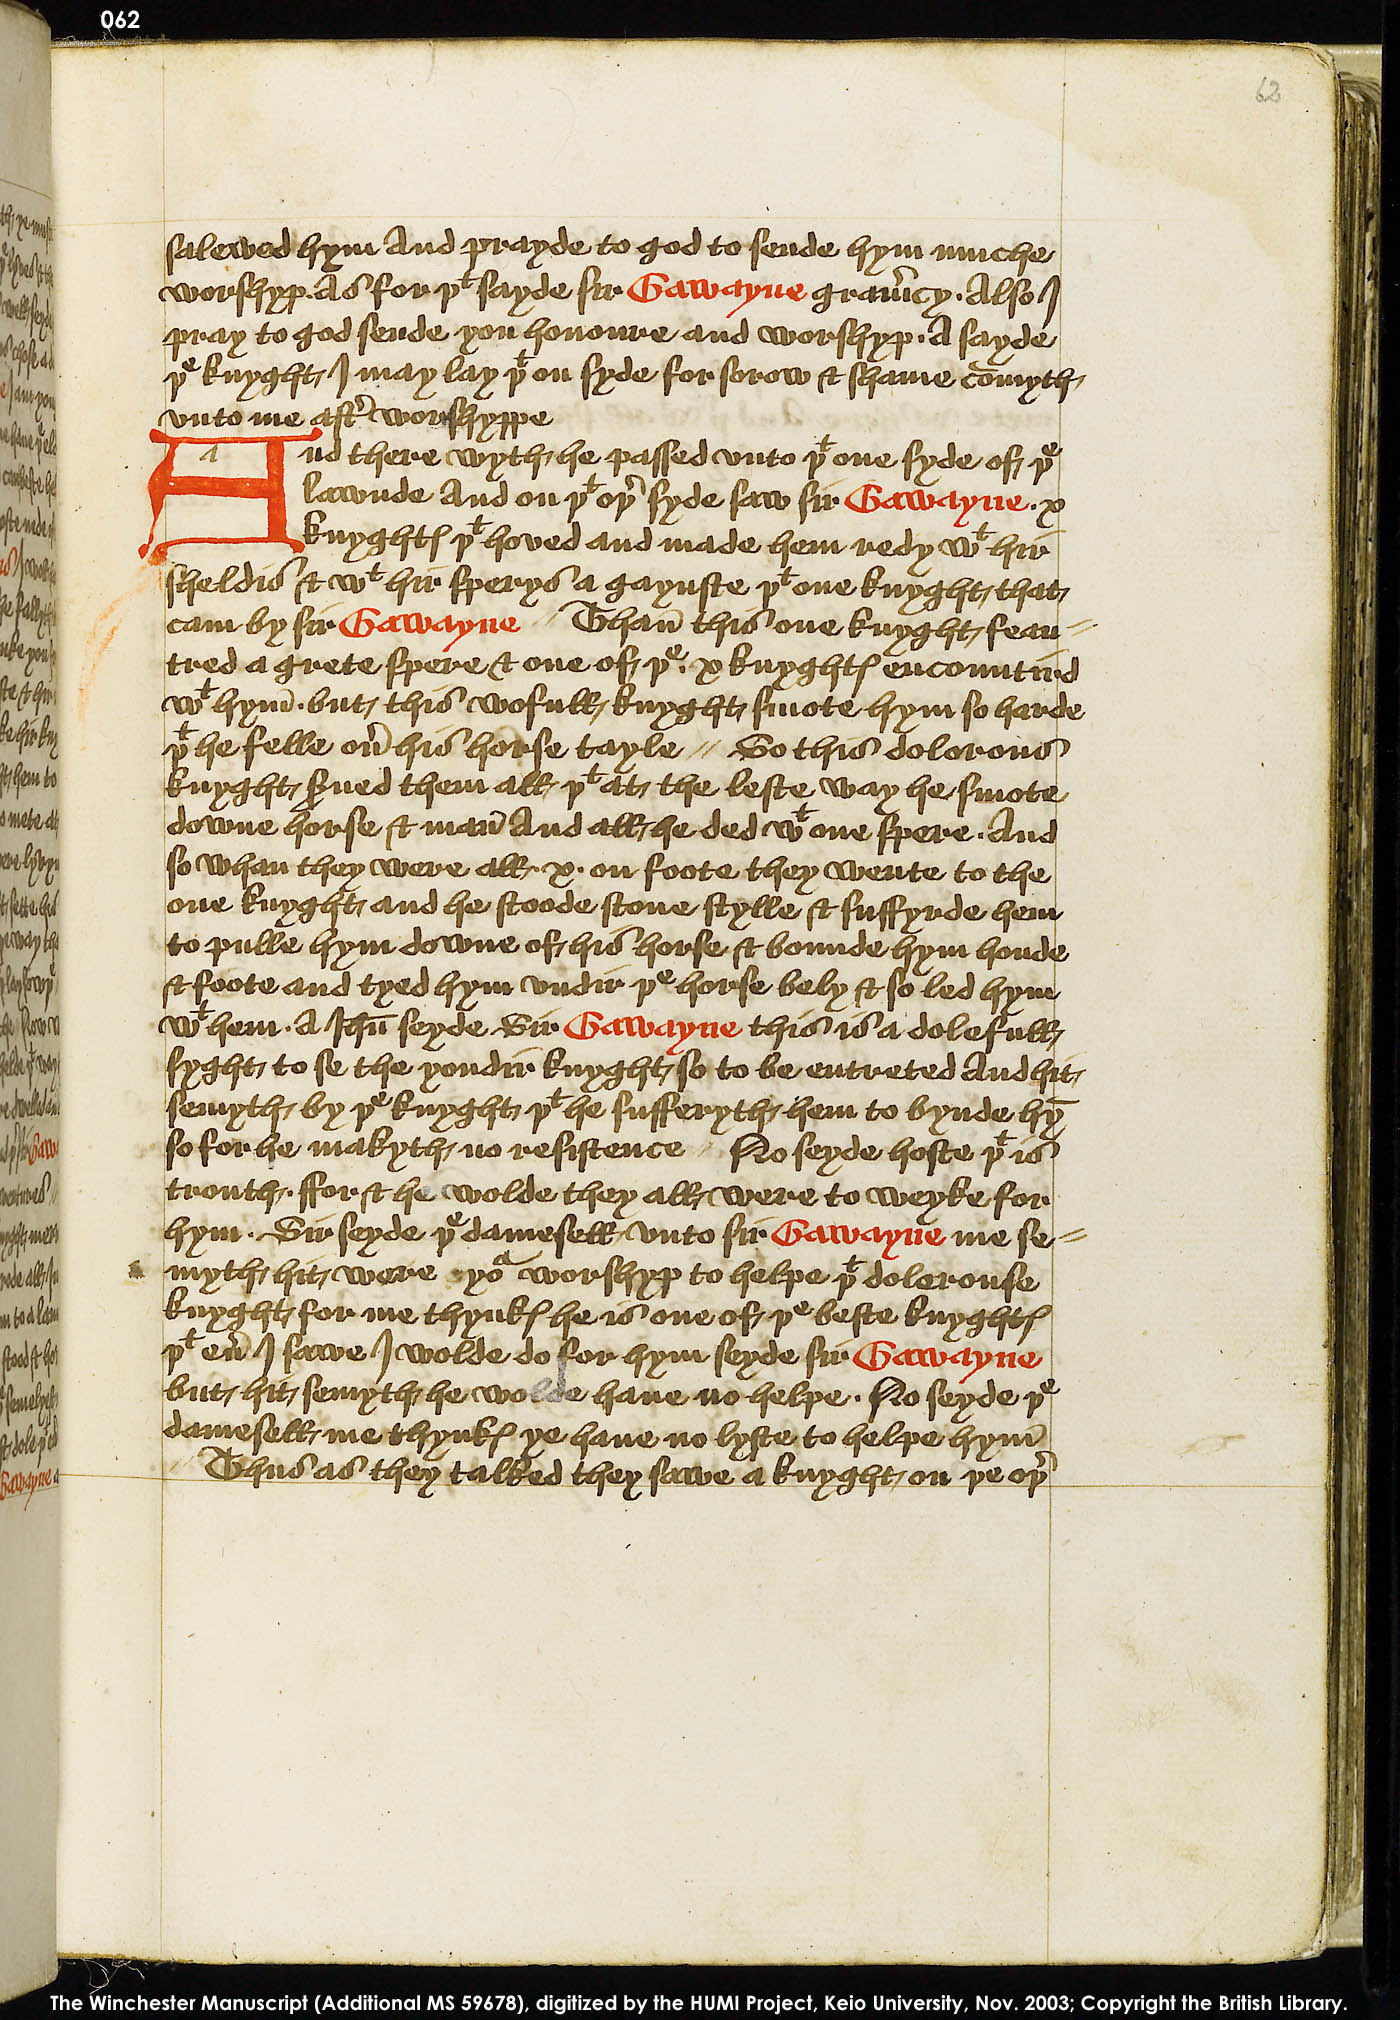 062
62
salewed hym And prayde to god to sende hym muche
worshyp. As for þt sayde sir Gawayne gram̄cy. Also I
pray to god sende you honoure and worshyp. A sayde
þe knyght I may lay þt on syde for sorow & shame cōmyth
vnto me aftr̄ worshyppe
And there wyth he passed vnto þt one syde of þe
lawnde And on þt oþr̄ syde saw sir Gawayne . x
knyghtꝭ þt hoved and made hem redy wt hir
sheldis & wt hir sperys a gaynste þt one knyght that
cam by sir Gawayne // Than̄ this one knyght feau=
tred a grete spere & one of þe . x knyghtꝭ encountird
wt hym̄. but this wofull knyght smote hym so harde
þt he felle oū his horse tayle // So this dolorous
knyght s̄ued them all þt at the leste way he smote
downe horse & man̄ And all he ded wt one spere. And
so whan they were all . x . on foote they wente to the
one knyght and he stoode stone stylle & suffyrde hem
to pulle hym downe of his horse & bounde hym honde
& foote and tyed hym vndir þe horse bely & so led hym
wt hem. A Ihū seyde Sir Gawayne this is a dolefull
syght to se the yondir knyght so to be entreted And hit
semyth by þe knyght þt he sufferyth hem to bynde hȳ
so for he makyth no resistence // No seyde hoste þt is
trouth. ffor & he wolde they all were to weyke for
hym. Sir seyde þe damesell vnto sir Gawayne me se=
myth hit were yor worshyp to helpe þt dolorouse
knyght for me thynkꝭ he is one of þe beste knyghtꝭ
þt eū I sawe I wolde do for hym seyde sir Gawayne
but hit semyth he wolde haue no helpe. No seyde þe
damesell me thynkꝭ ye haue no lyste to helpe hym̄
// Thus as they talked they sawe a knyght on þe oþr̄
The Winchester Manuscript (Additional MS 59678), digitized by the HUMI Project, Keio University, Nov. 2003; Copyright the British Library.